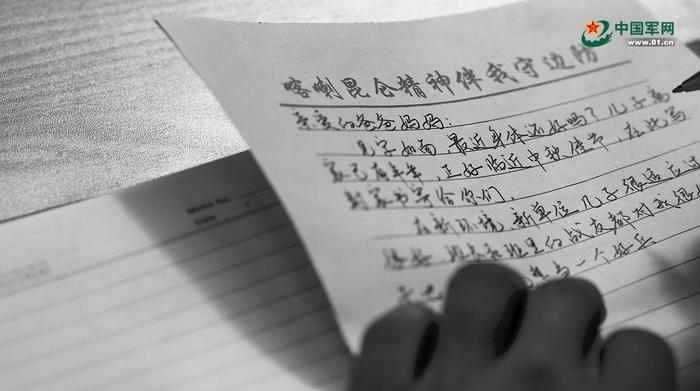 中国军网
www.81.cn
喀喇昆仑精神伴我守边防
亲爱的爸爸妈妈:
儿子如面,最近身体还好吗?儿子离
家已有半年,正好临近中秋佳节,在此写
封家书寄给你们。
在新环境,新单位儿子很适应
很好,班长和班里的战友都对我很
一个好兵
Memo No.
Date /